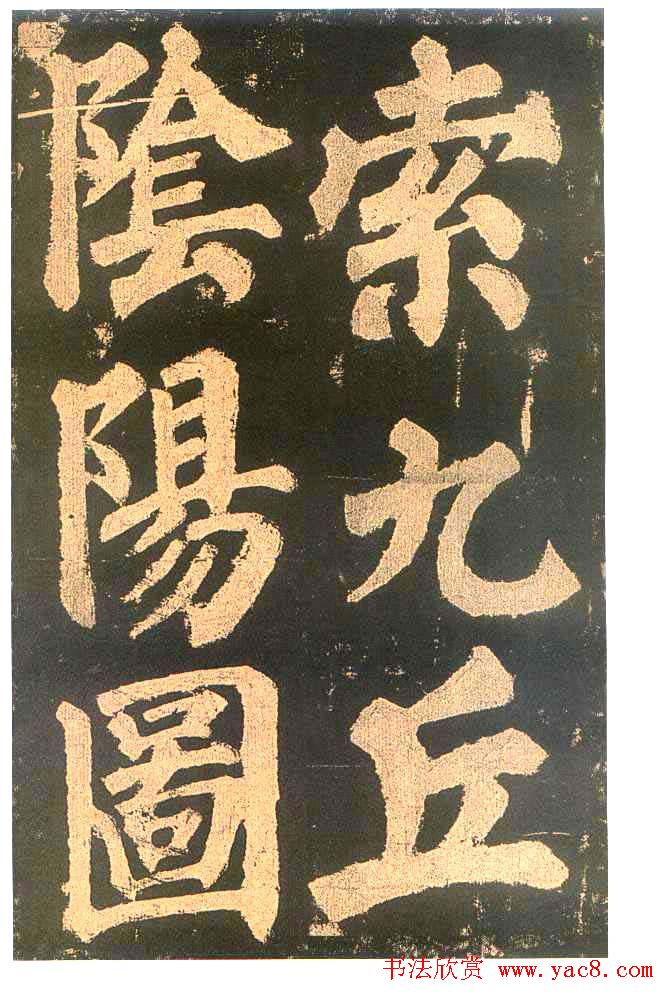 索九丘
陰陽圖
书法欣赏 www.yac8.com